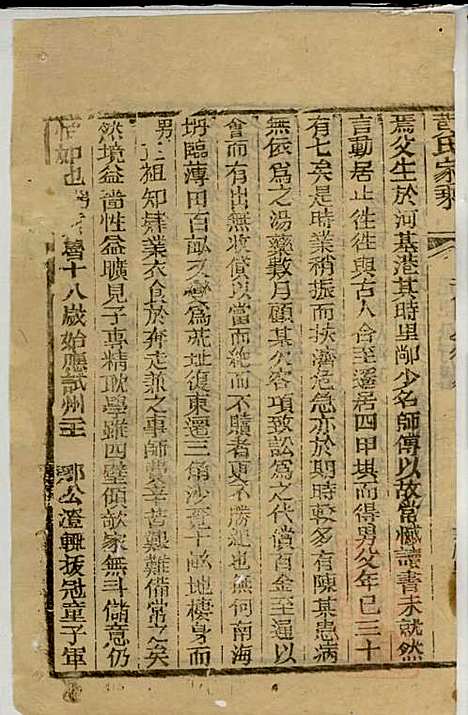 黄氏家乘
焉父生於河基港其時里鄰少名師傅以故常懒讀書未就然
言動居止徃徃與古人合至遷居四甲垻而得男父年已三十
有七矣是時業稍振而扶濟危急亦於期時較多有陳某患病
無依爲之湯藥數月顧某欠客項致訟爲之代償百金至逋以
會而有出無收貸以當而絶而不贖者更不勝紀也無何南海
坍臨溥田百畝又變爲荒址復東遷三角沙置十畝地棲身而
男上祖知肄業衣食於奔走兼之事師費辛苦艱難備常之矣
然境益嗇性益曠見子專精耽學雖四壁傾欹家無斗儲意仍
如也 十八歲始應試州 鄒公澄輙拔冠童子軍